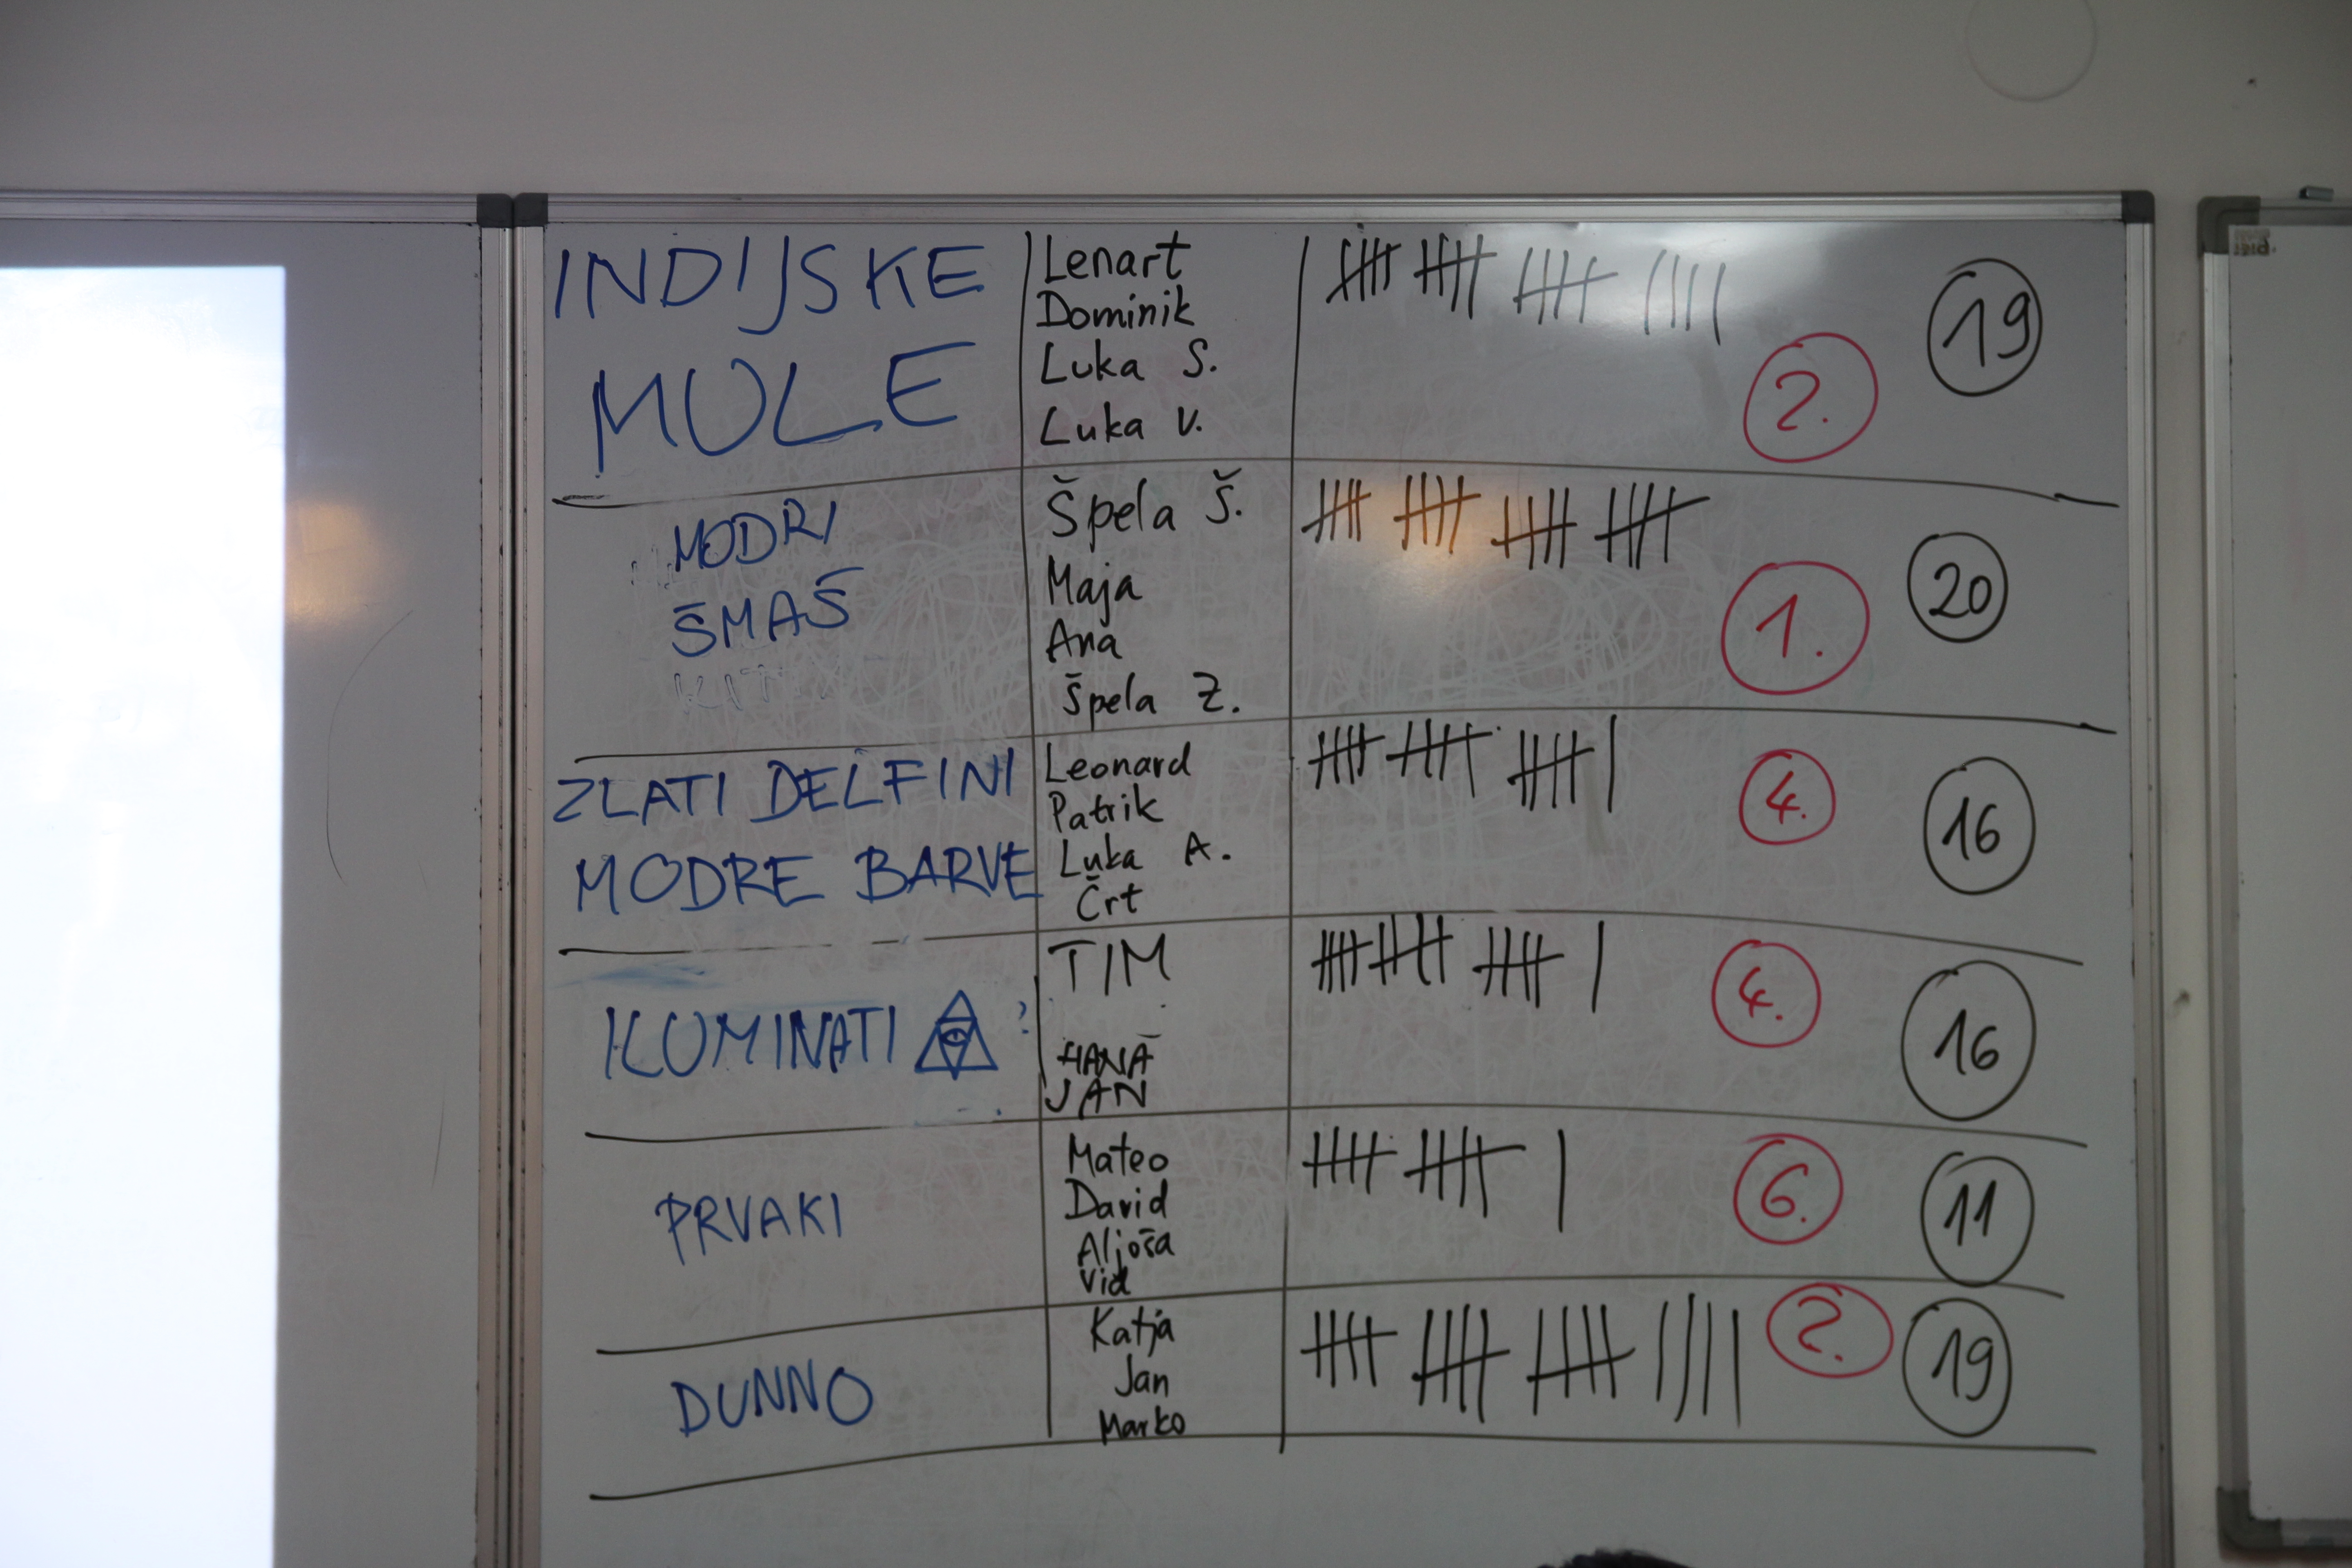 INDIJSKE
MULE
Lenart
Dominik
Luka S.
Luka V.
2.
19
MODRI
ŠMAŠ
Špela Š.
Maja
Ana
Špela Z.
1.
20
ZLATI DELFINI
MODRE BARVE
Leonard
Patrik
Luka A.
Črt
4.
16
ILUMINATI ?
TIM
HANA
JAN
4.
16
PRVAKI
Mateo
David
Aljoša
Vid
6.
11
DUNNO
Katja
Jan
Marko
2.
19